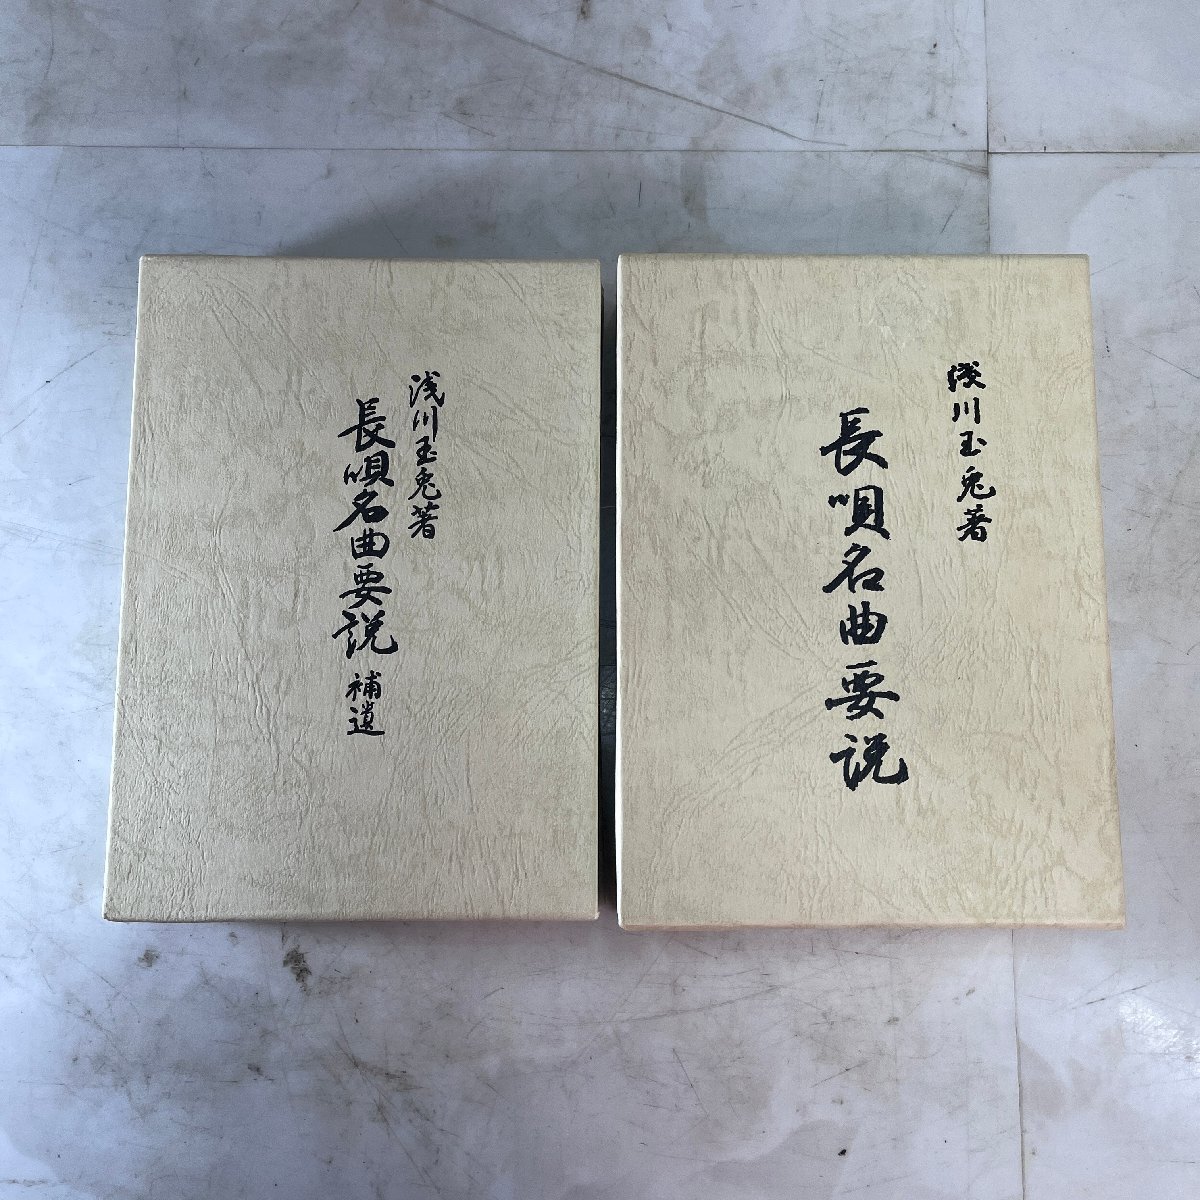 浅川玉兎著
長唄名曲要説
浅川玉兎著
長唄名曲要説 補遺